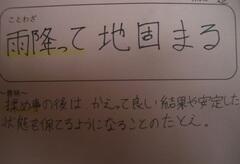 ことわざ
雨降って地固まる
~意味~
揉め事の後は かえって良い結果や安定した
状態を保てるようになることのたとえ。